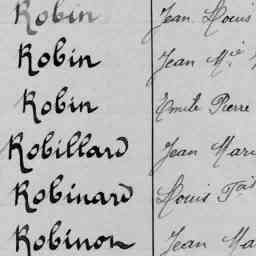 Robin Jean Louis
Robin Jean Mie
Robin Emile Pierre
Robillard Jean Mari
Robinard Louis Fois
Robinon Jean Ma